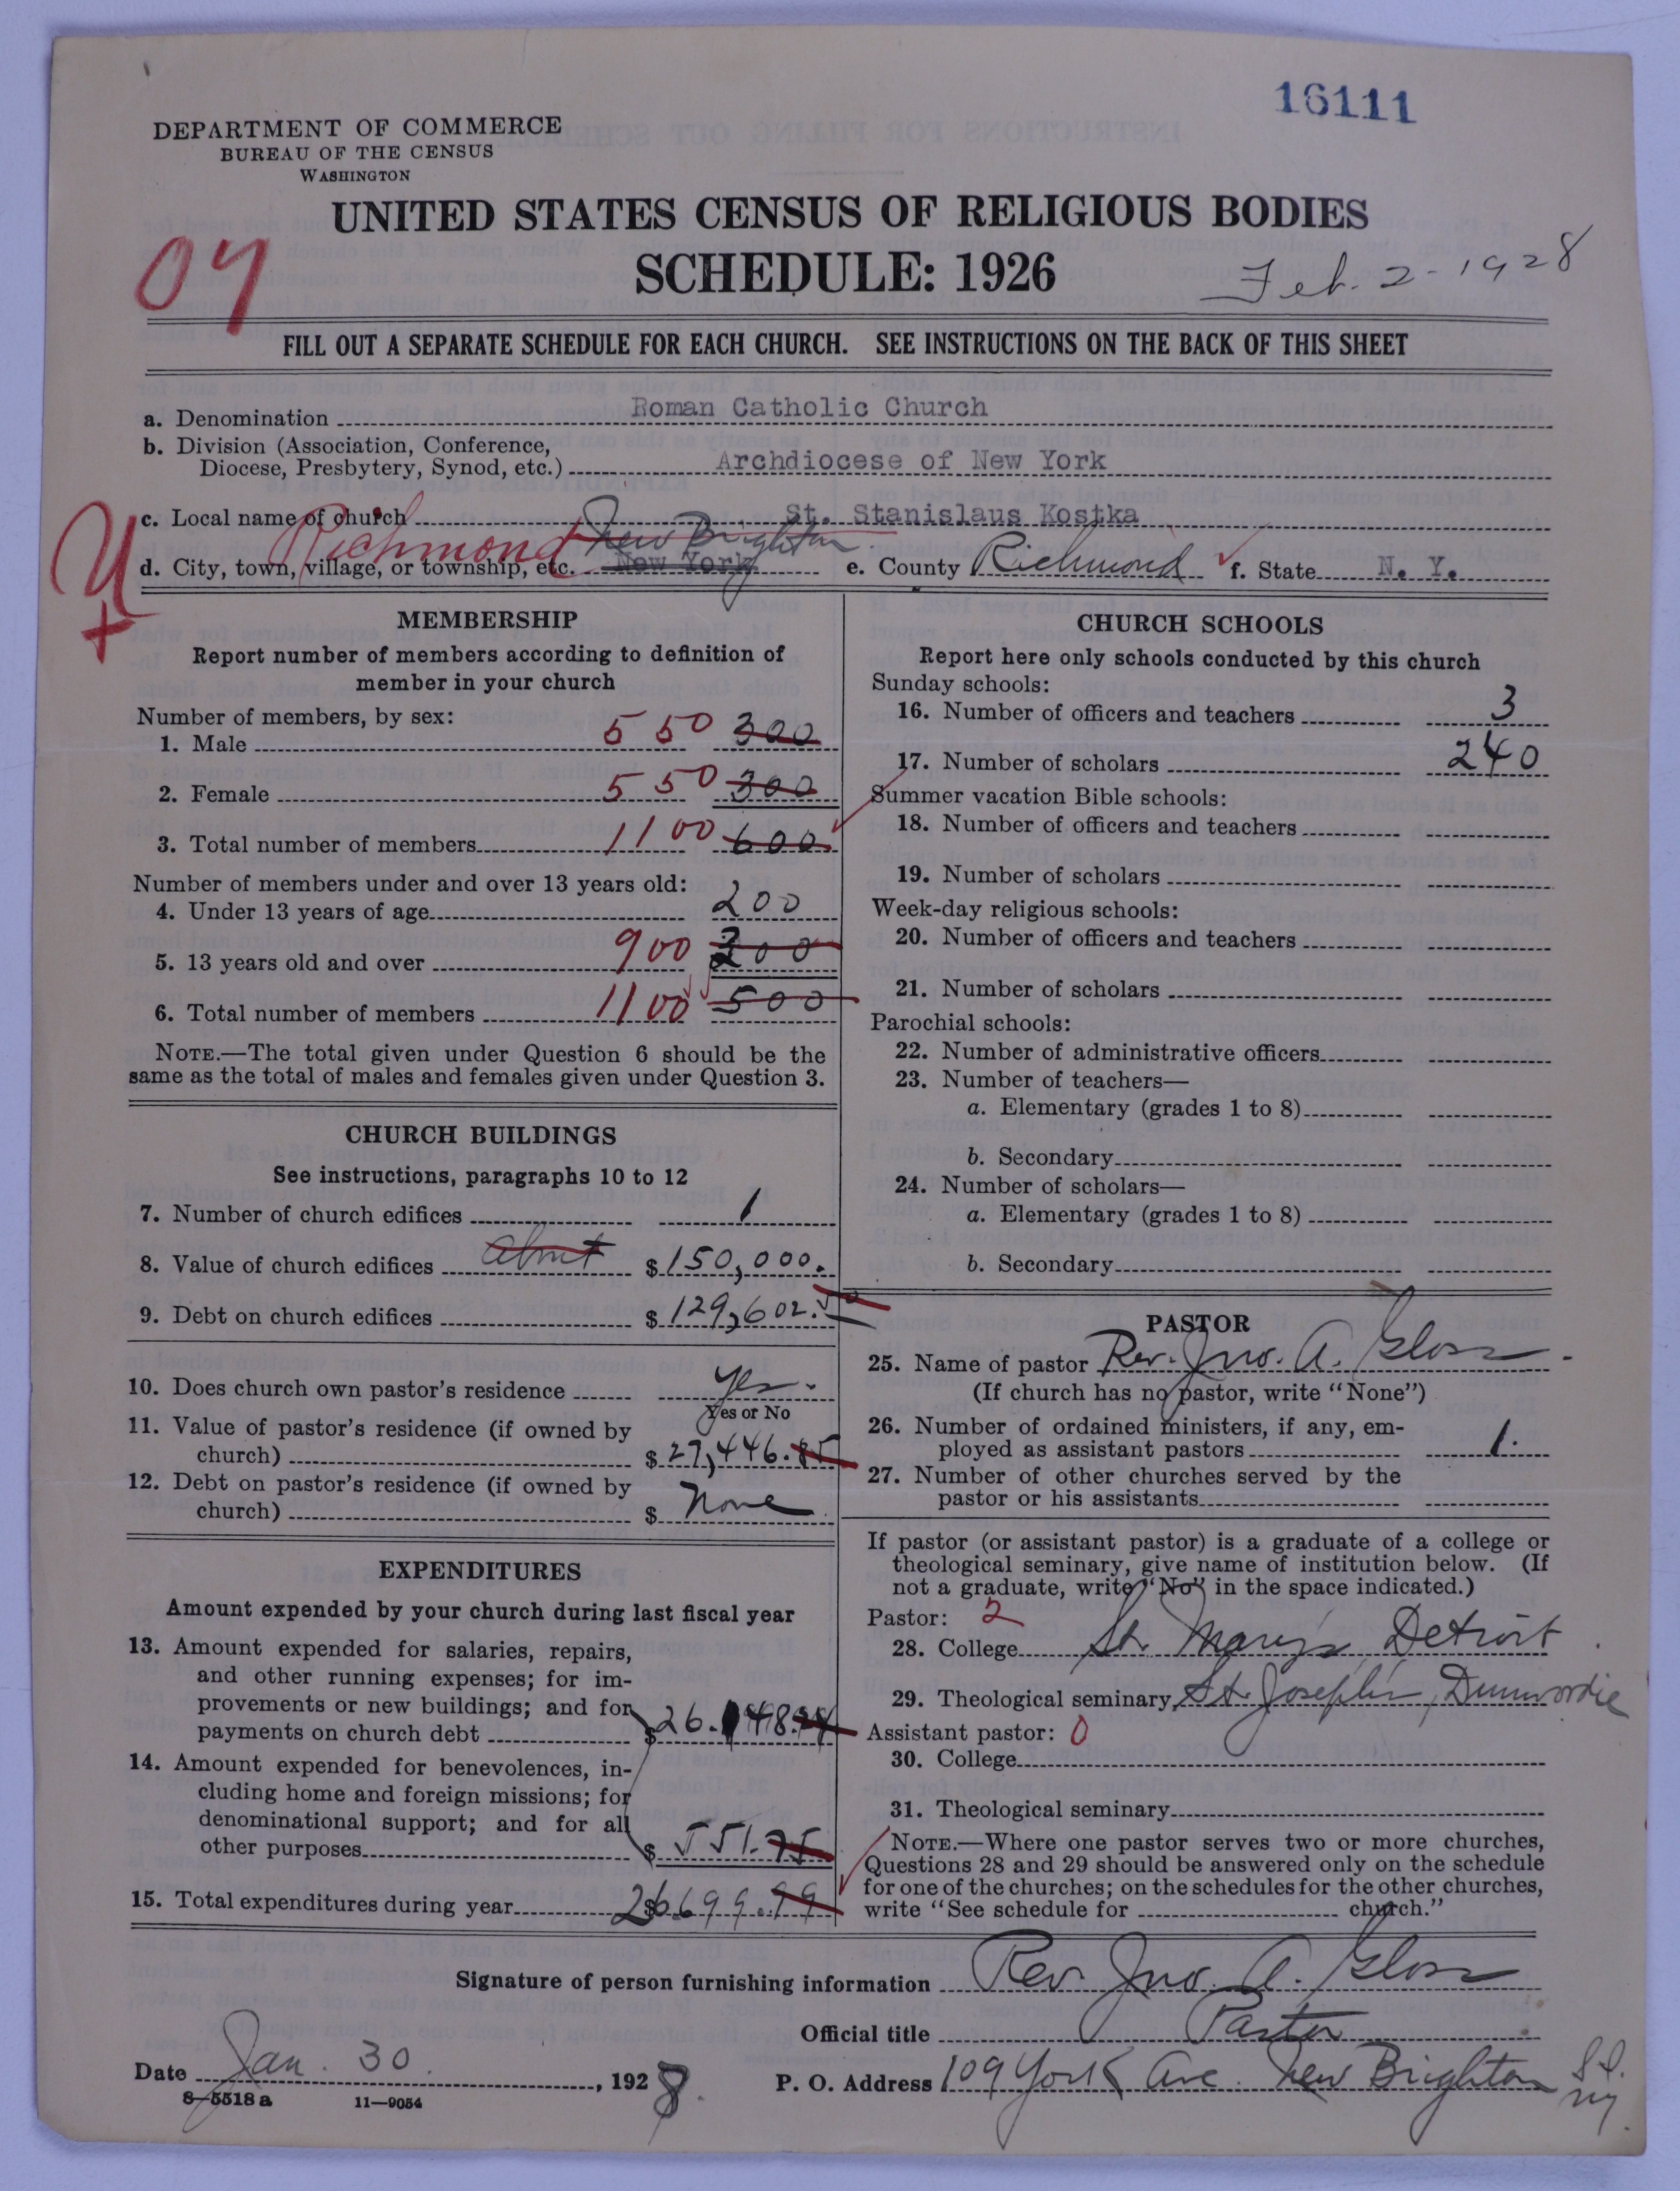 16111
DEPARTMENT OF COMMERCE
BUREAU OF THE CENSUS
WASHINGTON
UNITED STATES CENSUS OF RELIGIOUS BODIES
SCHEDULE: 1926
Feb. 2-1928
04
FILL OUT A SEPARATE SCHEDULE FOR EACH CHURCH. SEE INSTRUCTIONS ON THE BACK OF THIS SHEET
a. Denomination Roman Catholic Church
b. Division (Association, Conference,
Diocese, Presbytery, Synod, etc.) Archdiocese of New York
c. Local name of church St. Stanislaus Kostka
Richmond New Brighton
d. City, town, village, or township, etc. New York e. County Richmond f. State N. Y.
U
+
MEMBERSHIP
Report number of members according to definition of
member in your church
Number of members, by sex:
1. Male 550 300
2. Female 550 300
3. Total number of members 1100 600
Number of members under and over 13 years old:
4. Under 13 years of age 200
5. 13 years old and over 900 300
6. Total number of members 1100 500
NOTE.—The total given under Question 6 should be the
same as the total of males and females given under Question 3.
CHURCH BUILDINGS
See instructions, paragraphs 10 to 12
7. Number of church edifices 1
8. Value of church edifices about $150,000.
9. Debt on church edifices $129,602.50
10. Does church own pastor's residence Yes.
Yes or No
11. Value of pastor's residence (if owned by
church) $27,446.85
12. Debt on pastor's residence (if owned by
church) $ None
EXPENDITURES
Amount expended by your church during last fiscal year
13. Amount expended for salaries, repairs,
and other running expenses; for im-
provements or new buildings; and for
payments on church debt $26.148.24
14. Amount expended for benevolences, in-
cluding home and foreign missions; for
denominational support; and for all
other purposes $ 551.75
15. Total expenditures during year $26699.99
CHURCH SCHOOLS
Report here only schools conducted by this church
Sunday schools:
16. Number of officers and teachers 3
17. Number of scholars 240
Summer vacation Bible schools:
18. Number of officers and teachers
19. Number of scholars
Week-day religious schools:
20. Number of officers and teachers
21. Number of scholars
Parochial schools:
22. Number of administrative officers
23. Number of teachers—
a. Elementary (grades 1 to 8)
b. Secondary
24. Number of scholars—
a. Elementary (grades 1 to 8)
b. Secondary
PASTOR
25. Name of pastor Rev. Jno. A. Gloss
(If church has no pastor, write "None")
26. Number of ordained ministers, if any, em-
ployed as assistant pastors 1.
27. Number of other churches served by the
pastor or his assistants
If pastor (or assistant pastor) is a graduate of a college or
theological seminary, give name of institution below. (If
not a graduate, write "No" in the space indicated.)
Pastor: 2
28. College St. Mary's, Detroit
29. Theological seminary St. Joseph's, Dunwoodie
Assistant pastor: 0
30. College
31. Theological seminary
NOTE.—Where one pastor serves two or more churches,
Questions 28 and 29 should be answered only on the schedule
for one of the churches; on the schedules for the other churches,
write "See schedule for church."
Signature of person furnishing information Rev. Jno. A. Gloss
Official title Pastor
Date Jan. 30, 1928. P. O. Address 109 York Ave. New Brighton S.I.
N.Y.
8—5518a 11—9054